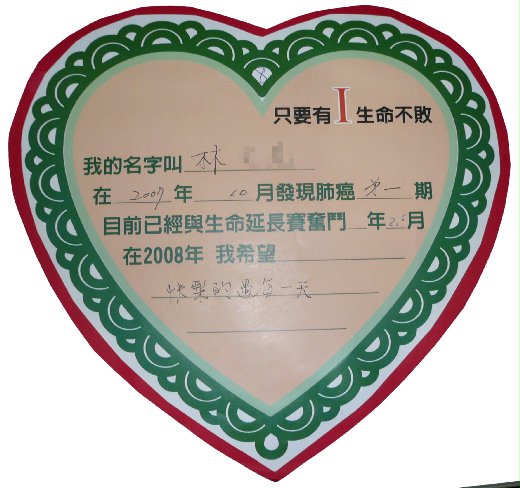 只要有 I 生命不敗
我的名字叫 林
在 2007 年 10 月發現肺癌 第一 期
目前已經與生命延長賽奮鬥 年 2.5 月
在2008年 我希望
快樂的過每一天